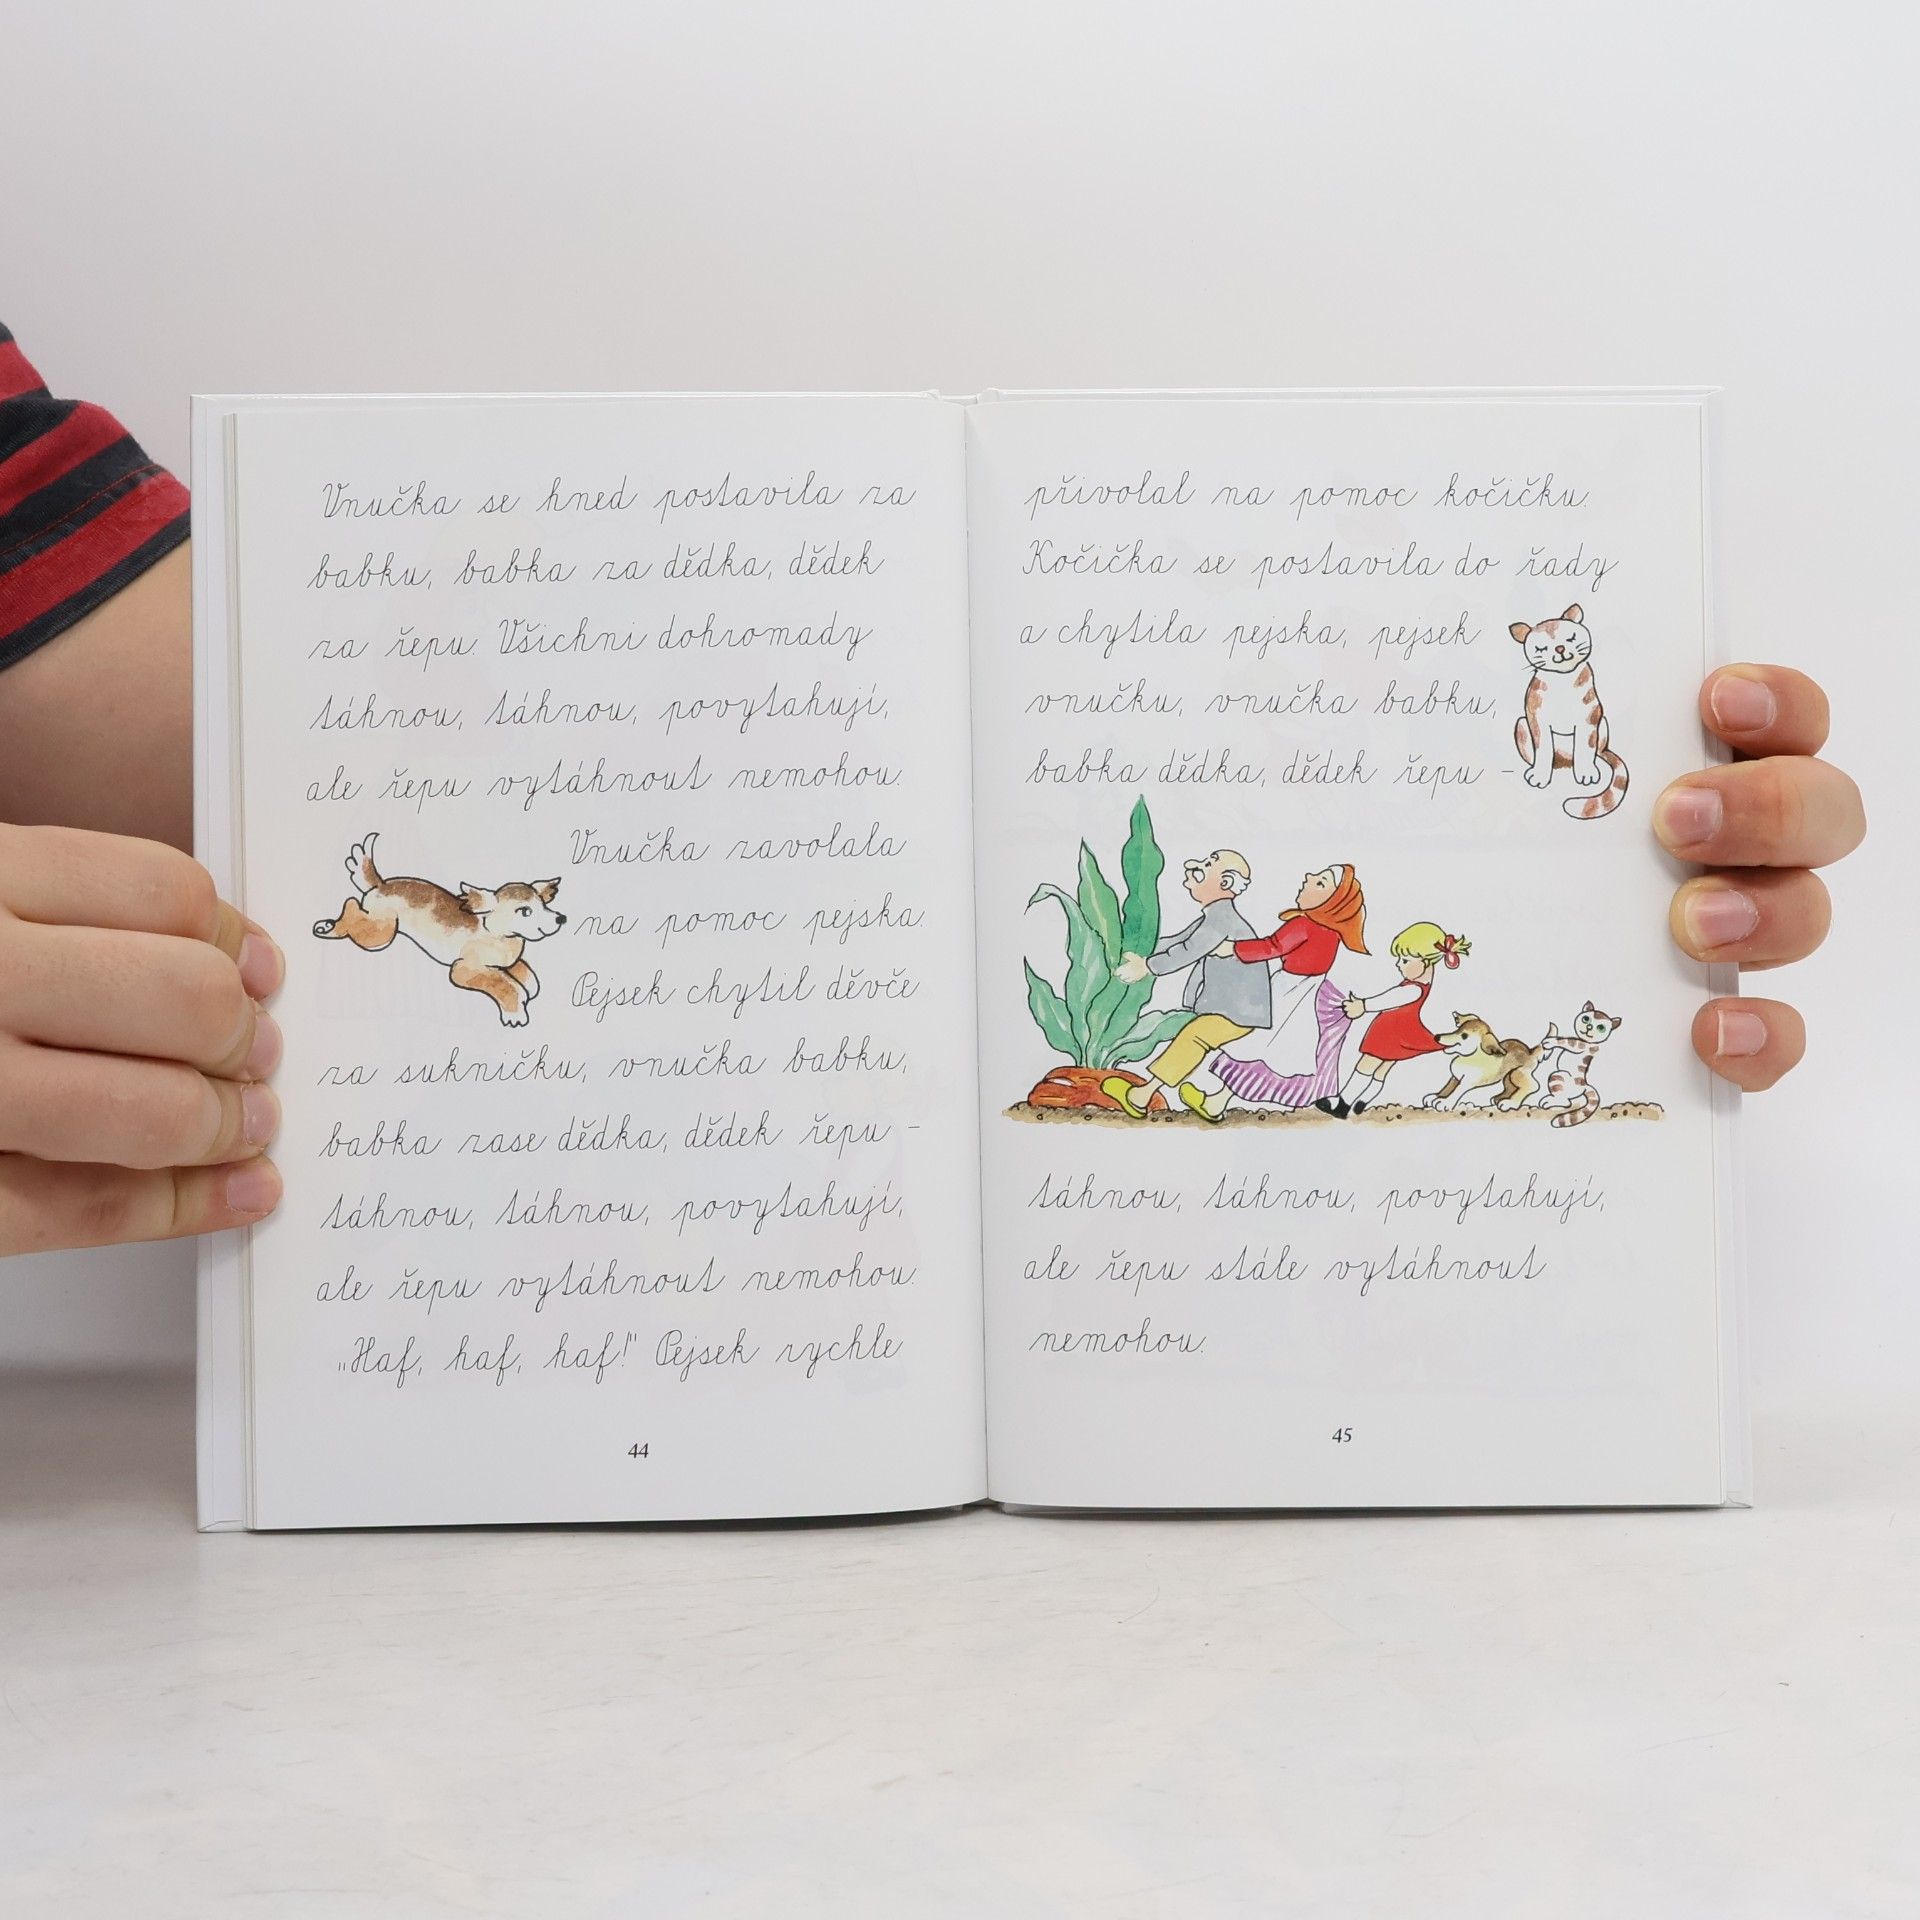 Vnučka se hned postavila za
babku, babka za dědka, dědek
za řepu. Všichni dohromady
táhnou, táhnou, povytahují,
ale řepu vytáhnout nemohou.
Vnučka zavolala
na pomoc pejska.
Pejsek chytil děvče
za sukničku, vnučka babku,
babka zase dědka, dědek řepu –
táhnou, táhnou, povytahují,
ale řepu vytáhnout nemohou.
„Haf, haf, haf!" Pejsek rychle
44
přivolal na pomoc kočičku.
Kočička se postavila do řady
a chytila pejska, pejsek
vnučku, vnučka babku,
babka dědka, dědek řepu –
táhnou, táhnou, povytahují,
ale řepu stále vytáhnout
nemohou.
45